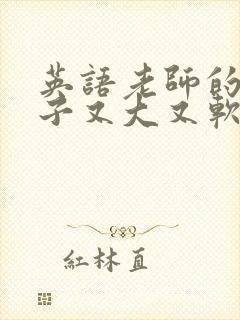 英語老師的
子又大又軟
紅林直